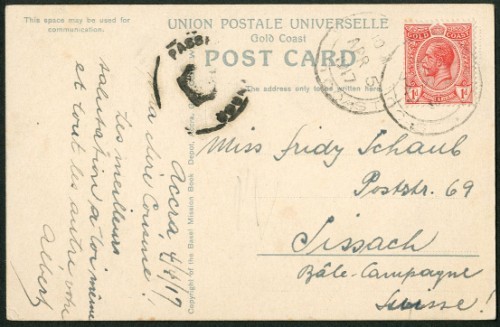 This space may be used for
communication.
UNION POSTALE UNIVERSELLE
Gold Coast
POST CARD
The address only to be written here.
GOLD COAST
1d 1d
APR 5
17
PASS
Copyright of the Basel Mission Book Depot, Accra
Accra, 4/4/17
Ma chère Cousine!
Les meilleurs
salutation à toi même
et tout les autre, votre
Albert
Miss Fridy Schaub
Poststr. 69
Sissach
Bâle-Campagne
Suisse!